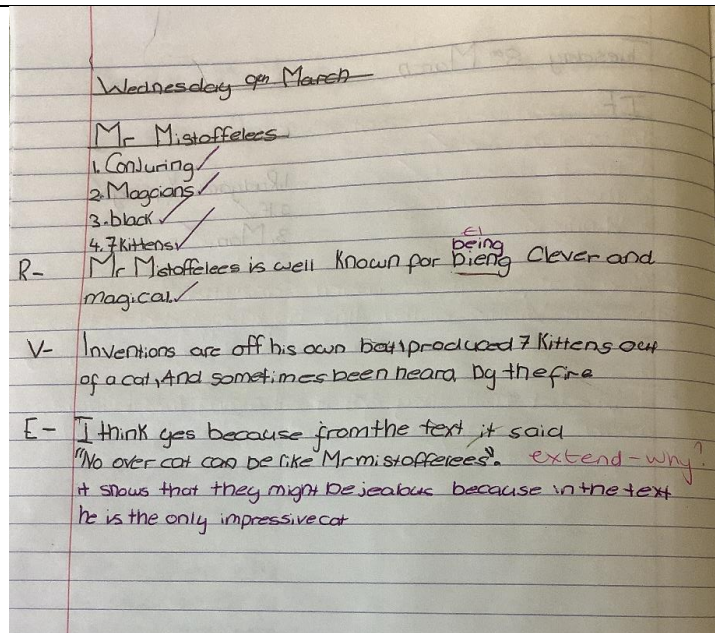 Wednesday 9th March
Mr Mistoffelees
1. Conjuring ✓
2. Magcians ✓
3. black ✓
4. 7 Kittens ✓
being
R- Mr Mistoffelees is well Known for bieng Clever and
magical. ✓
V- Inventions are off his own produced 7 Kittens out
of a cat, And sometimes been heard by the fire
E- I think yes because from the text it said
"No over cat can be like Mr mistoffelees". extend - why?
it shows that they might be jealous because in the text
he is the only impressive cat